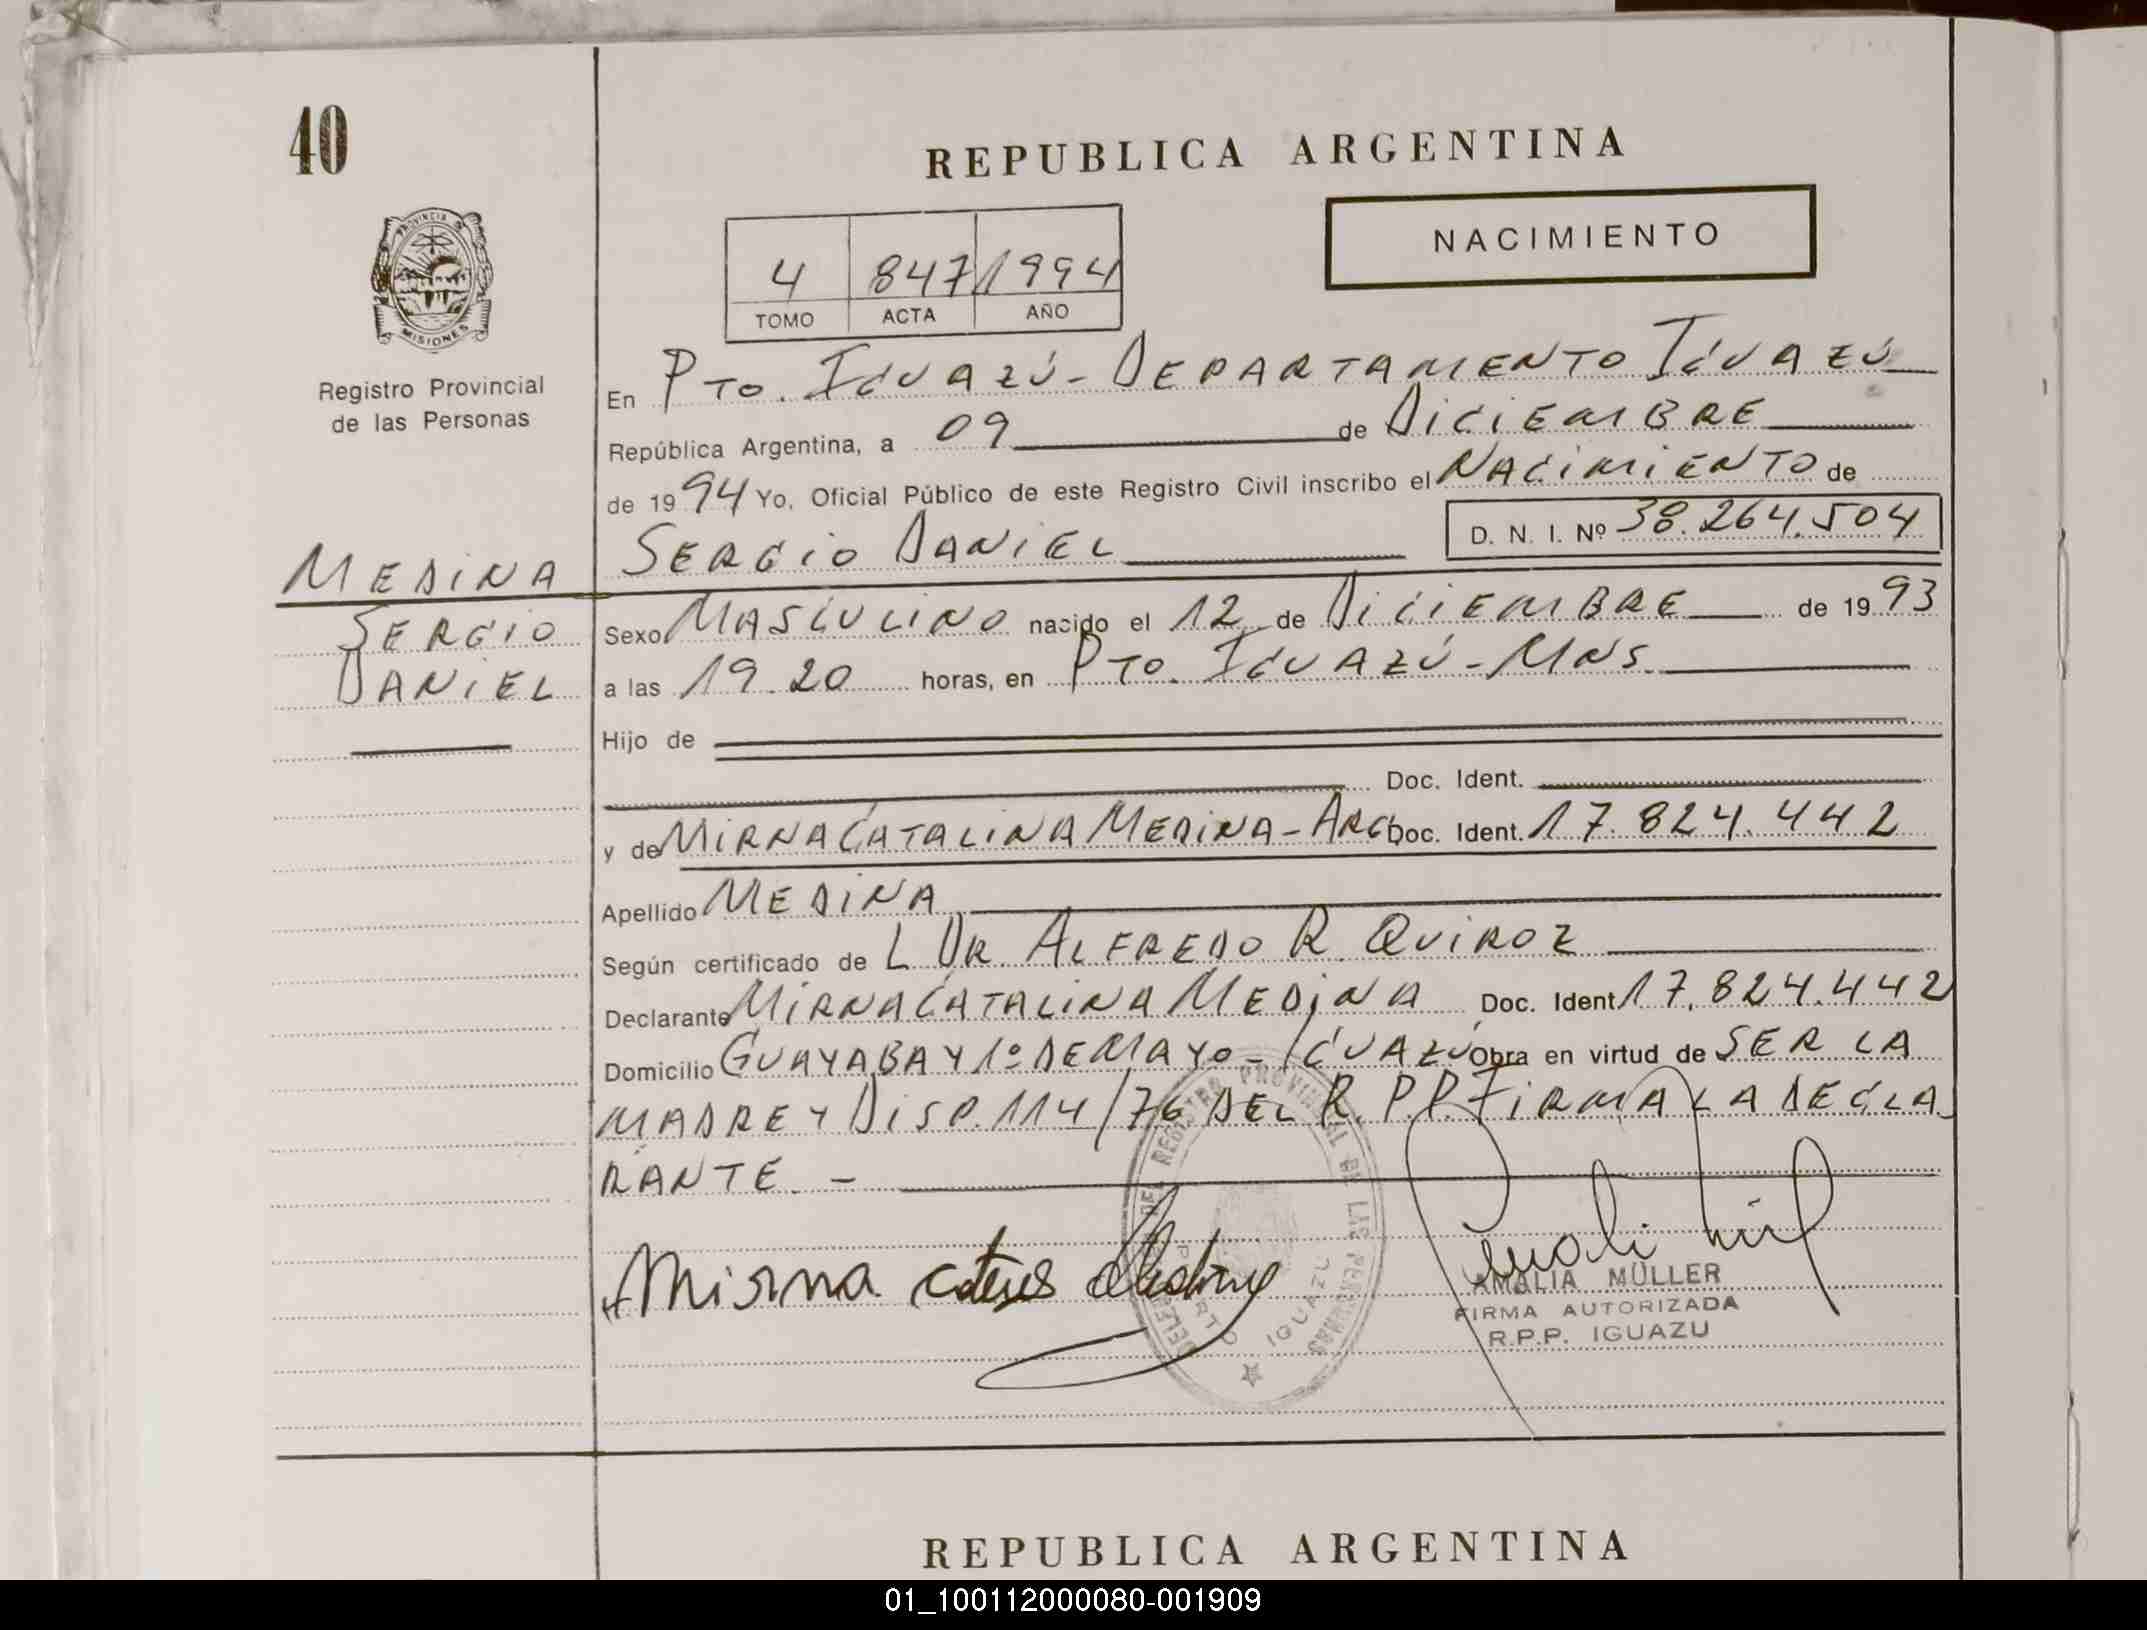 40
REPUBLICA ARGENTINA
NACIMIENTO
4 847 1994
TOMO ACTA AÑO
PROVINCIA
MISIONES
Registro Provincial
de las Personas
En PTO. IGUAZÚ - DEPARTAMENTO IGUAZÚ
República Argentina, a 09 de DICIEMBRE
de 1994 Yo, Oficial Público de este Registro Civil inscribo el NACIMIENTO de
SERGIO DANIEL D. N. I. Nº 38.264.504
MEDINA
SERGIO
DANIEL
Sexo MASCULINO nacido el 12 de DICIEMBRE de 1993
a las 19.20 horas, en PTO. IGUAZÚ - MNS.
Hijo de
Doc. Ident.
y de MIRNA CATALINA MEDINA - ARG. Doc. Ident. 17.824.442
Apellido MEDINA
Según certificado de L DR. ALFREDO R. QUIROZ
Declarante MIRNA CATALINA MEDINA Doc. Ident 17.824.442
Domicilio GUAYABA Y 1º DE MAYO - IGUAZÚ Obra en virtud de SER LA
MADRE Y DISP. 114/76 DEL R.P.P. FIRMA LA DECLA
RANTE. -
DEL REGISTRO PROVINCIAL DE LAS PERSONAS
PUERTO IGUAZU
Mirna Medina
AMALIA MÜLLER
FIRMA AUTORIZADA
R.P.P. IGUAZU
REPUBLICA ARGENTINA
01_100112000080-001909